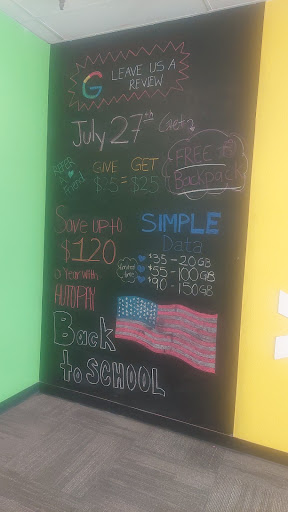 G LEAVE US A
REVIEW
July 27th Get a
FREE
Backpack
REFER
A
Friend
GIVE GET
$25 = $25
Save up to
$120
a Year with
AUTOPAY
SIMPLE
Data
Limited
time
$35 - 20GB
$55 - 100GB
$90 - 150GB
Back
to SCHOOL